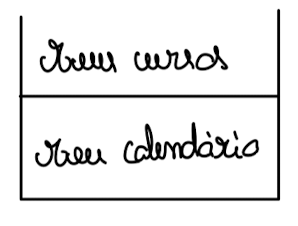 Meus cursos
Meu calendário